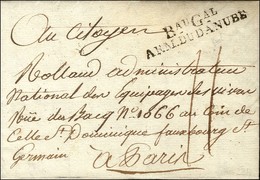 Au Citoyen
Bau Gal
ARM. DU DANUBE
Rolland administrateur
National des Equipages des vivres
Rue du Bacq No. 1666 au Coin de
Celle St. Dominique fauxbourg St.
Germain
à Paris